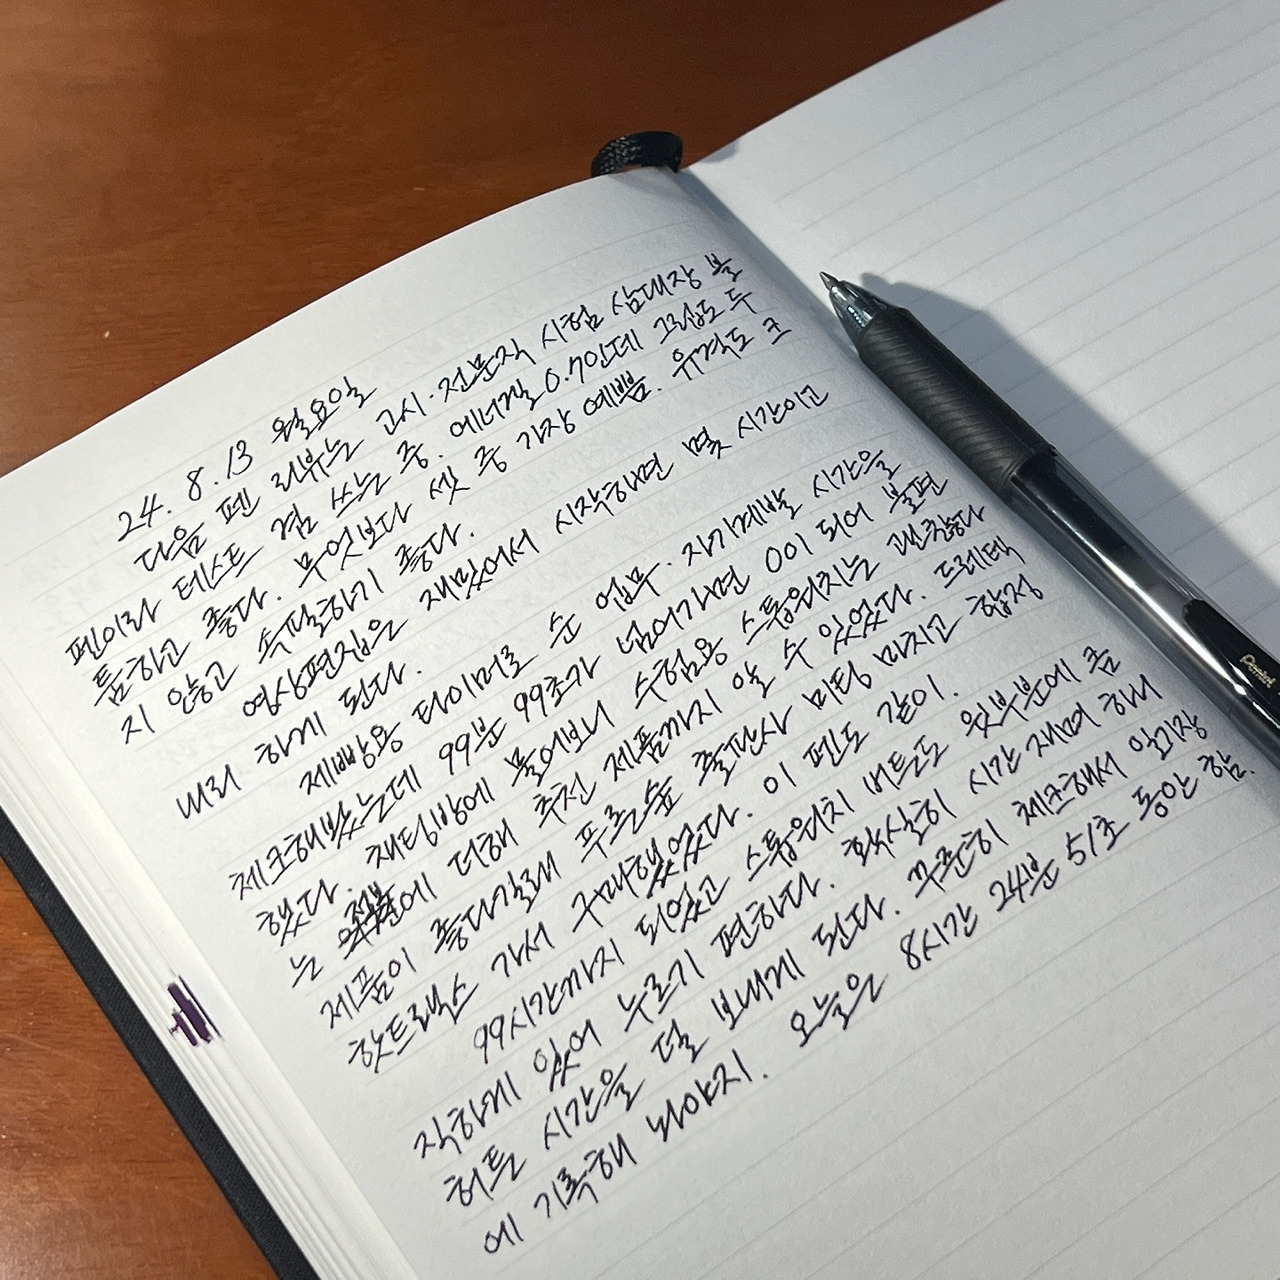 24. 8. 13 월요일
다음 펜 리뷰는 고시·전문직 시험 삼대장 볼
펜이라 테스트 겸 쓰는 중. 에너겔 0.7인데 그립도 두
툼하고 좋다. 무엇보다 셋 중 가장 예쁨. 유격도 크
지 않고 속필하기 좋다.
영상편집은 재밌어서 시작하면 몇 시간이고
내리 하게 된다.
제빵용 타이머로 순 업무. 자기계발 시간을
체크해봤는데 99분 99초가 넘어가면 00이 되어 불편
했다. 채팅방에 물어보니 수험용 스톱워치는 괜찮다
는 의견에 더해 추천 제품까지 알 수 있었다. 드레텍
제품이 좋다길래 푸른숲 출판사 미팅 마치고 합정
핫트랙스 가서 구매했었다. 이 펜도 같이.
99시간까지 되었고 스톱워치 버튼도 윗부분에 큼
직하게 있어 누르기 편하다. 확실히 시간 재며 하니
허튼 시간을 덜 보내게 된다. 꾸준히 체크해서 일기장
에 기록해 놔야지. 오늘은 8시간 24분 51초 동안 함.
Pentel